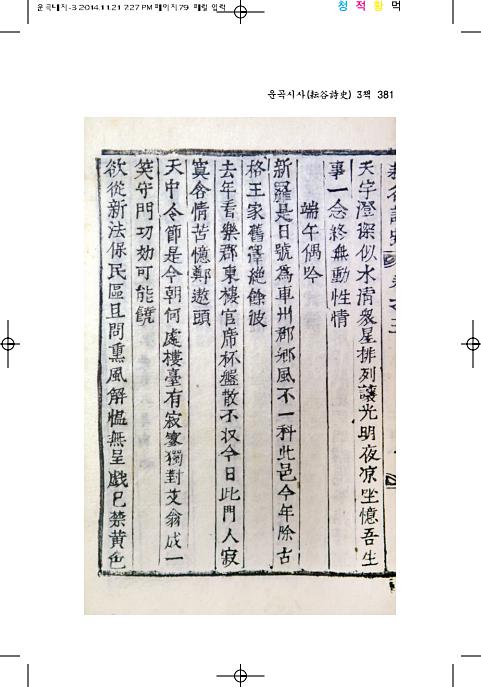 운곡대지-3 2014.11.21 7:27 PM 페이지79 매킬 입력
청 적 황 먹
운곡시사(耘谷詩史) 3책 381
天宇澄深似水淸衆星排列讓光明夜凉坐憶吾生
事一念終無動性情
端午偶吟
新羅是日號爲車州郡鄕風不一科此邑今年除古
格王家舊澤絶餘波
去年看樂郡東樓官席杯盤散不收今日此門人寂
寞含情苦憶鄭遨頭
天中令節是今朝何處樓臺有寂寥獨對艾翁成一
笑守門功効可能饒
欲從新法保民區且問熏風解慍無呈戱已禁黃色